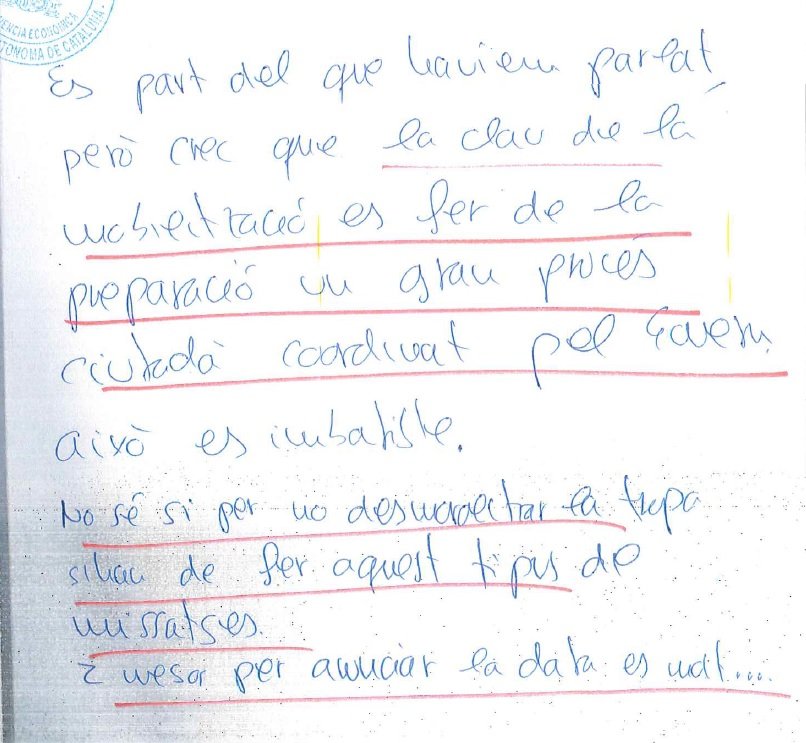 ENCIA ECONÒMICA
TÒNOMA DE CATALUNYA.
Es part del que havíem parlat
però crec que la clau de la
mobilització es fer de la
preparació un gran procés
ciutadà coordinat pel Govern
això es imbatible.
No sé si per no desmoralitzar la tropa
sihau de fer aquest tipus de
missatges.
2 mesos per anunciar la data es molt....